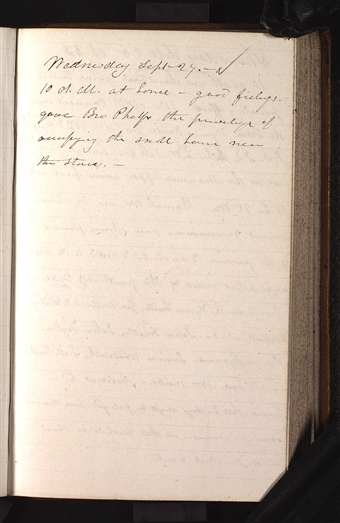 Wednesday Sept- 27.- ✓
10 A. M. at home - good feelings-
gave Bro Phelps the privelege of
occupying the small house near
the store. -